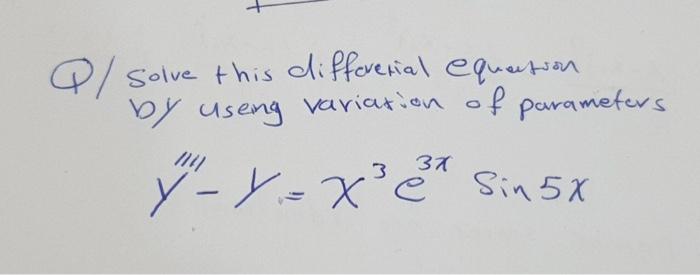 Q/ Solve this differerial equation
by useng variation of parameters
y'''' - y = x³ e³ˣ Sin 5x